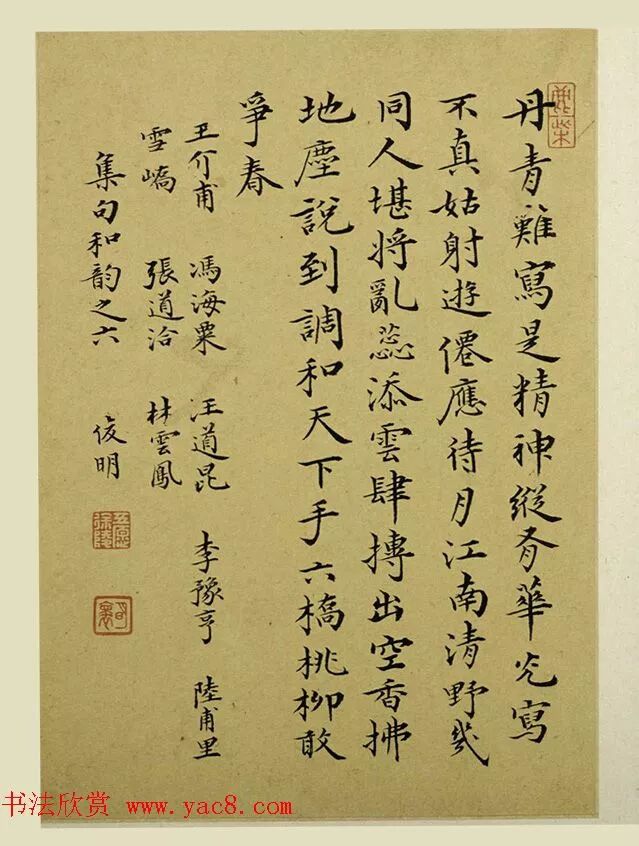 丹青難寫是精神縱有華光寫
不真姑射遊僊應待月江南清野幾
同人堪將亂蕊添雲肆摶出空香拂
地塵說到調和天下手六橋桃柳敢
爭春
王介甫 馮海粟 汪道昆 李豫亨 陸甫里
雪嶠 張道洽 林雲鳳
集句和韻之六 俊明
书法欣赏 www.yac8.com